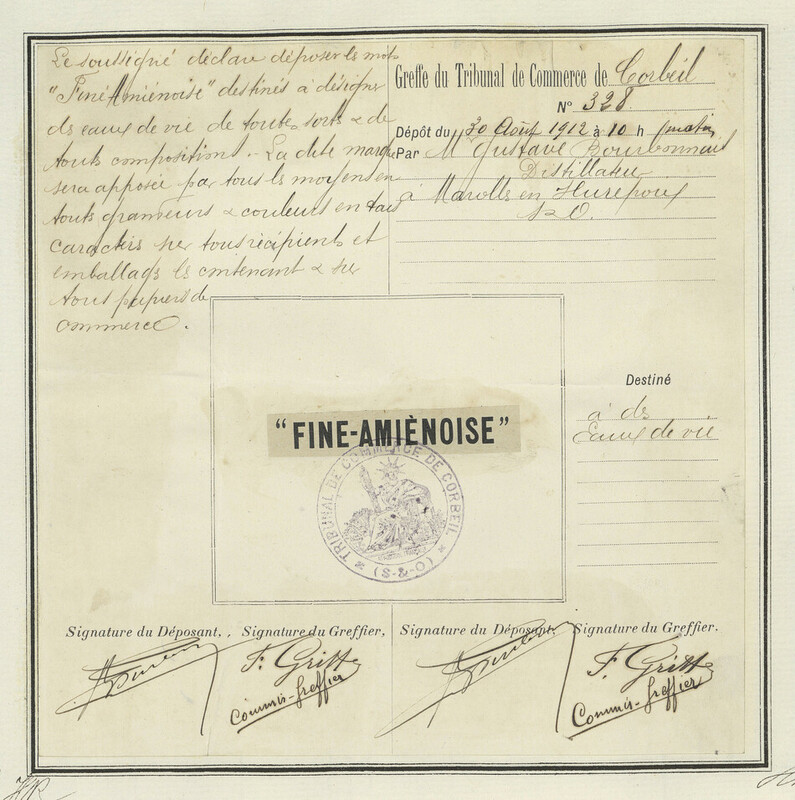 Le soussigné déclare déposer les mots
"Fine Amiènoise" destinés à désigner
des eaux de vie de toutes sortes & de
toutes compositions. La dite marque
sera apposée par tous les moyens en
toutes grandeurs & couleurs en tous
caractères sur tous récipients et
emballages les contenant & sur
tous papiers de
commerce.
Greffe du Tribunal de Commerce de Corbeil
N° 328
Dépôt du 30 Août 1912 à 10 h matin
Par M Gustave Bourbonneux
Distillateur
à Marolles en Hurepoix
S&O.
Destiné
à des
Eaux de vie
"FINE-AMIÈNOISE"
TRIBUNAL DE COMMERCE DE CORBEIL
(S-&-O)
Signature du Déposant, Signature du Greffier, Signature du Déposant, Signature du Greffier.
Commis-Greffier
Commis-Greffier